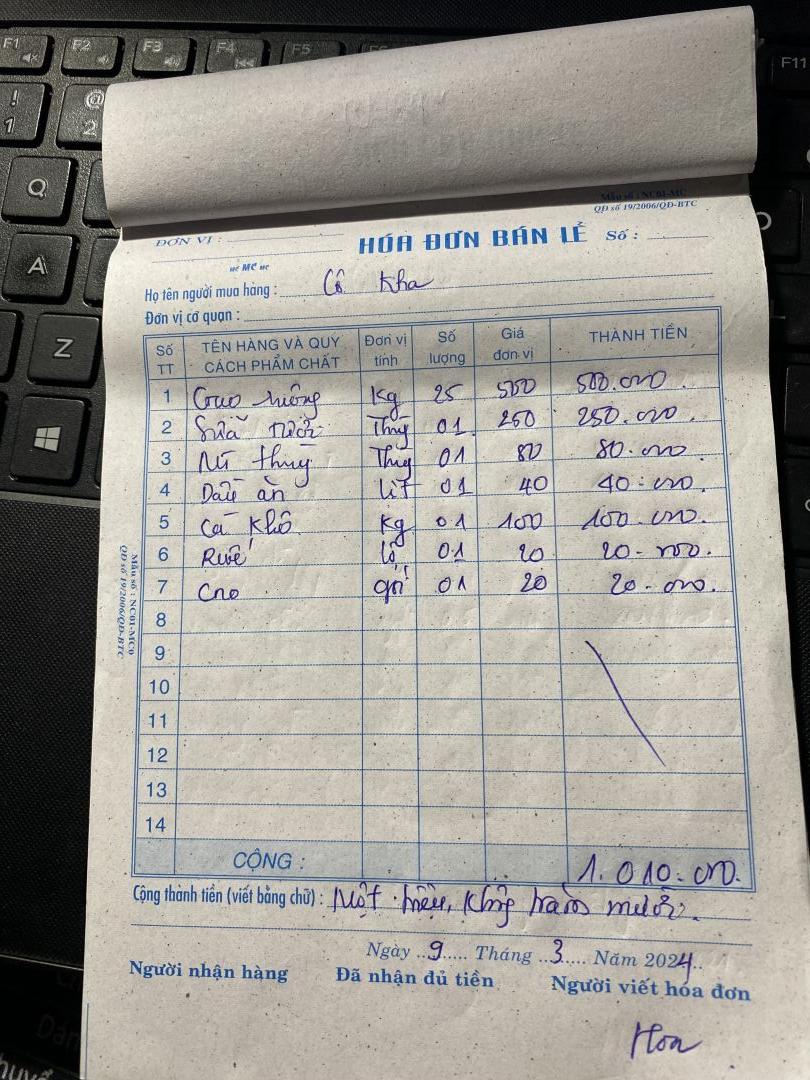 F1 F2 F3 F4 F5 F11
! 1 @ 2
Q
A
Z
Mẫu số : NC01-MC
QĐ số 19/2006/QĐ-BTC
ĐƠN VỊ :
HÓA ĐƠN BÁN LẺ Số :
MC
Họ tên người mua hàng : Cô Kha
Đơn vị cơ quan :
Số TT TÊN HÀNG VÀ QUY CÁCH PHẨM CHẤT Đơn vị tính Số lượng Giá đơn vị THÀNH TIỀN
1 Gạo Kg 25 500 500.000.
2 Sữa Thùg 01 250 250.000.
3 thuỷ Thùg 01 80 80.000.
4 Dầu ăn lít 01 40 40.000.
5 Cá Khô Kg 01 100 100.000.
6 01 20 20.000.
7 gói 01 20 20.000.
8
9
10
11
12
13
14
CỘNG : 1.010.000.
Cộng thành tiền (viết bằng chữ) : Một triệu, không trăm mười.
Ngày 9 Tháng 3 Năm 2024
Người nhận hàng Đã nhận đủ tiền Người viết hóa đơn
Hoa
Mẫu số : NC01-MC0
QĐ số 19/2006/QĐ-BTC